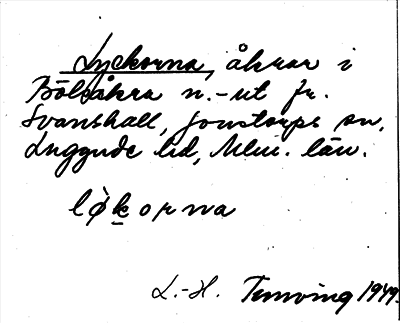 Lyckorna, åkrar i
Bölsåkra n.-ut fr.
Svanshall, Jonstorps sn,
Luggude hd, Mlm. län.
lø̀k̲orna
L.-H. Tenning 1949.